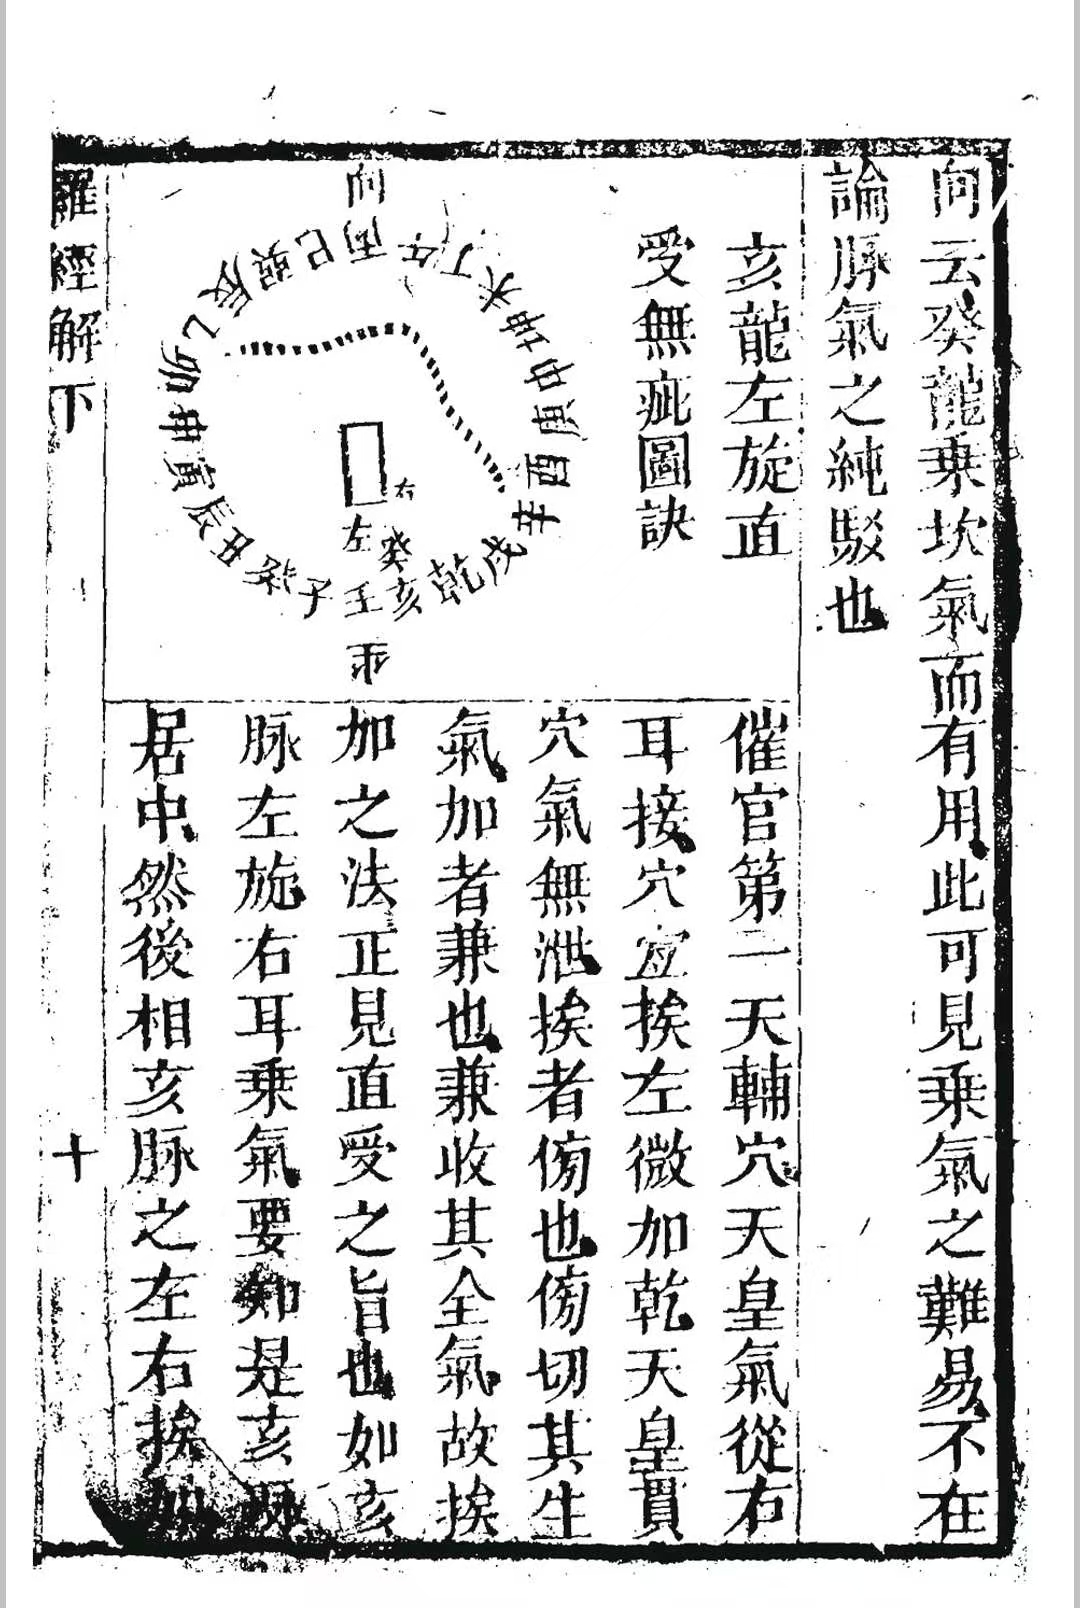 向云癸龍乗坎氣而有用此可見乗氣之難易不在
論脉氣之純駁也
亥龍左旋直
受無疵圖訣
向
丙午丁未坤申庚酉辛戌乾亥壬子癸丑辰寅甲卯乙辰巽巳
右
左
癸
乖
催官第二天輔穴天皇氣從右
耳接穴宜挨左微加乾天皇貫
穴氣無泄挨者傍也傍切其生
氣加者兼也兼收其全氣故挨
加之法正見直受之旨也如亥
脉左旋右耳乗氣要如是亥脉
居中然後相亥脉之左右挨加
羅經解下
十